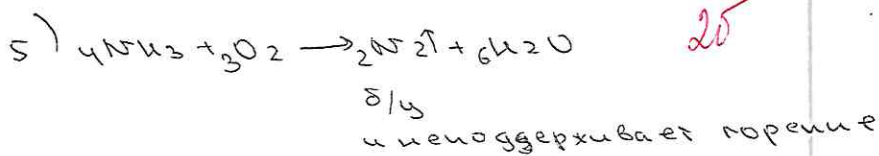 5) 4NH3 + 3O2 → 2N2↑ + 6H2O 2б
б/ц
и неподдерживает горение